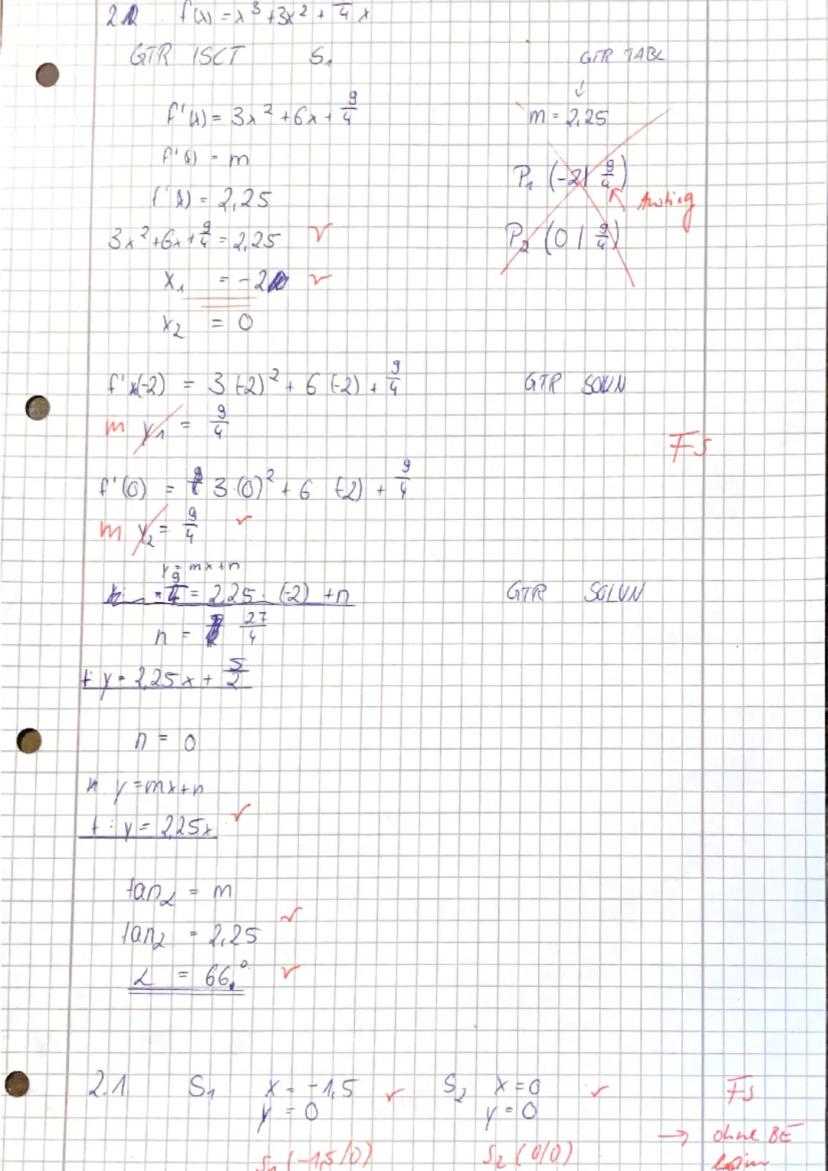 f(x) = x³ + 3x² + 9/4 x
GTR ISCT S₁ GTR TABL
↓
f'(x) = 3x² + 6x + 9/4 m = 2,25
f'(x) = m P₁ (-2 | 9/4)
f'(x) = 2,25
3x² + 6x + 9/4 = 2,25 ✓ P₂ (0 | 9/4)
x₁ = -2 ✓
x₂ = 0
f'x(-2) = 3 (-2)² + 6 (-2) + 9/4 GTR SOLVN
m y₁ = 9/4
Fs
f'(0) = 3·(0)² + 6 (-2) + 9/4
m y₂ = 9/4 ✓
y = mx+n
-9/4 = 2,25 · (-2) + n GTR SOLVN
n = 27/4
t y = 2,25x + 5/2
n = 0
y = mx+n
t: y = 2,25x ✓
tan α = m
tan α = 2,25 ✓
α = 66,° ✓
2.1. S₁ x = -1,5 ✓ S₂ x = 0 ✓ Fs
y = 0 y = 0
→ ohne BE
S₁ (-1,5/0) S₂ (0/0)